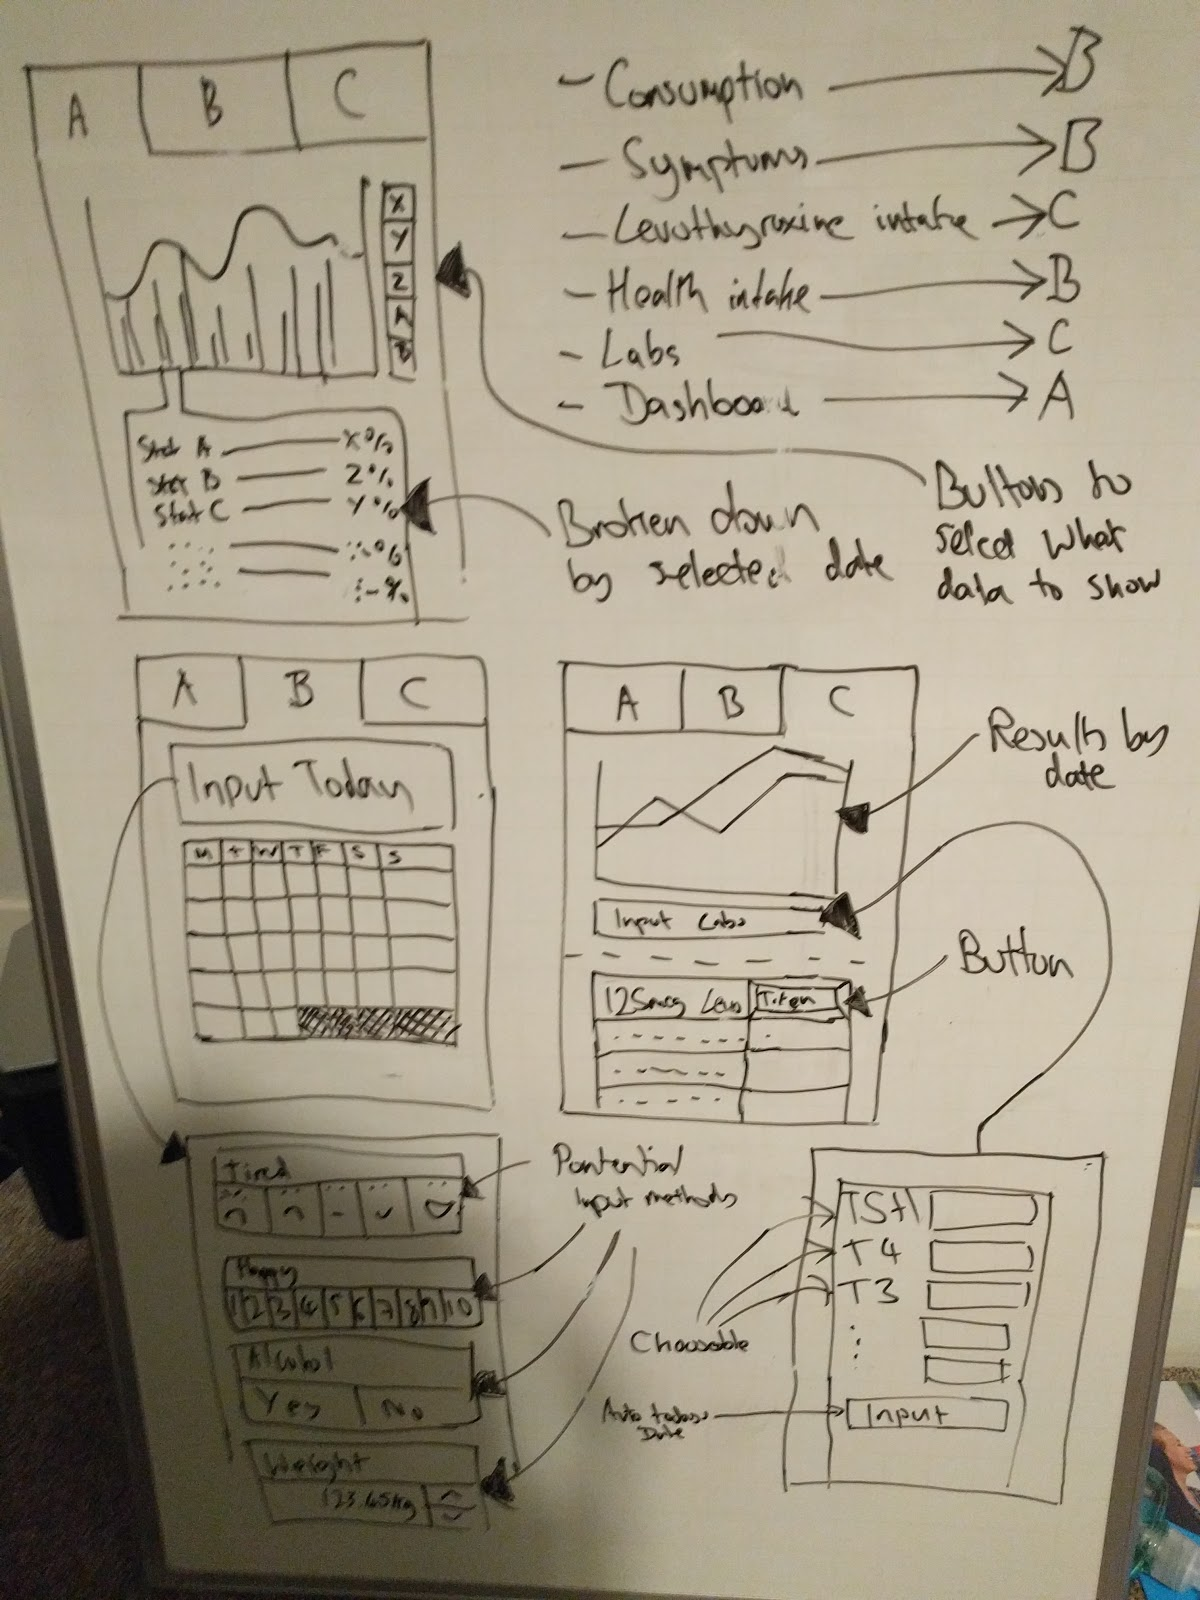 A B C
X
Y
Z
A
B
Stat A X%
Stat B Z%
Stat C Y%
%
%
- Consumption B
- Symptoms B
- Levothyroxine intake C
- Health intake B
- Labs C
- Dashboard A
Broken down
by selected date
Buttons to
select what
data to show
A B C
Input Today
M T W T F S S
A B C
Input Labs
125mcg Levo Taken
Results by
date
Button
Tired
Happy
1 2 3 4 5 6 7 8 9 10
Alcohol
Yes No
Weight
123.45Kg
Pontential
Input methods
TSH
T4
T3
Input
Choosable
Auto todays
Date